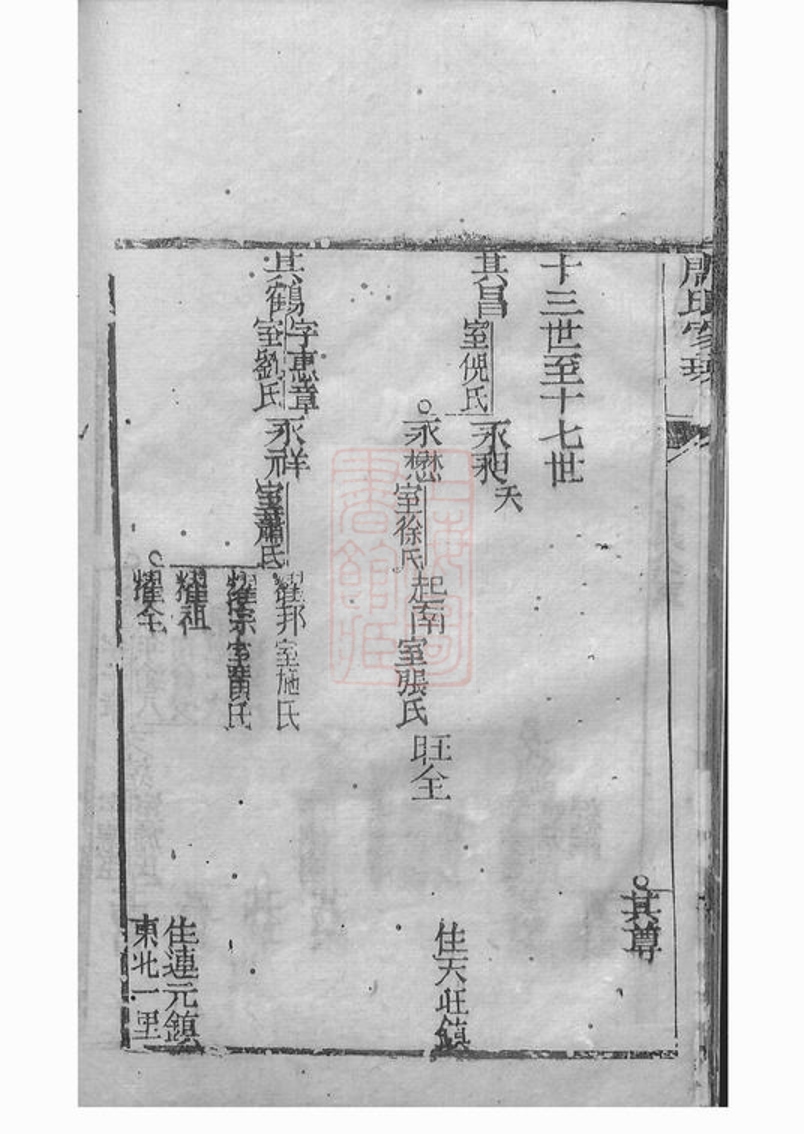 周氏家乘
其尊
十三世至十七世
其昌
室倪氏
永昶
夭
永懋
室徐氏
起南
室張氏
旺全
住天旺鎮
其鶴
字惠章
室劉氏
永祥
室蕭氏
耀邦
室施氏
耀宗
室黃氏
耀祖
耀全
住連元鎮
東北一里